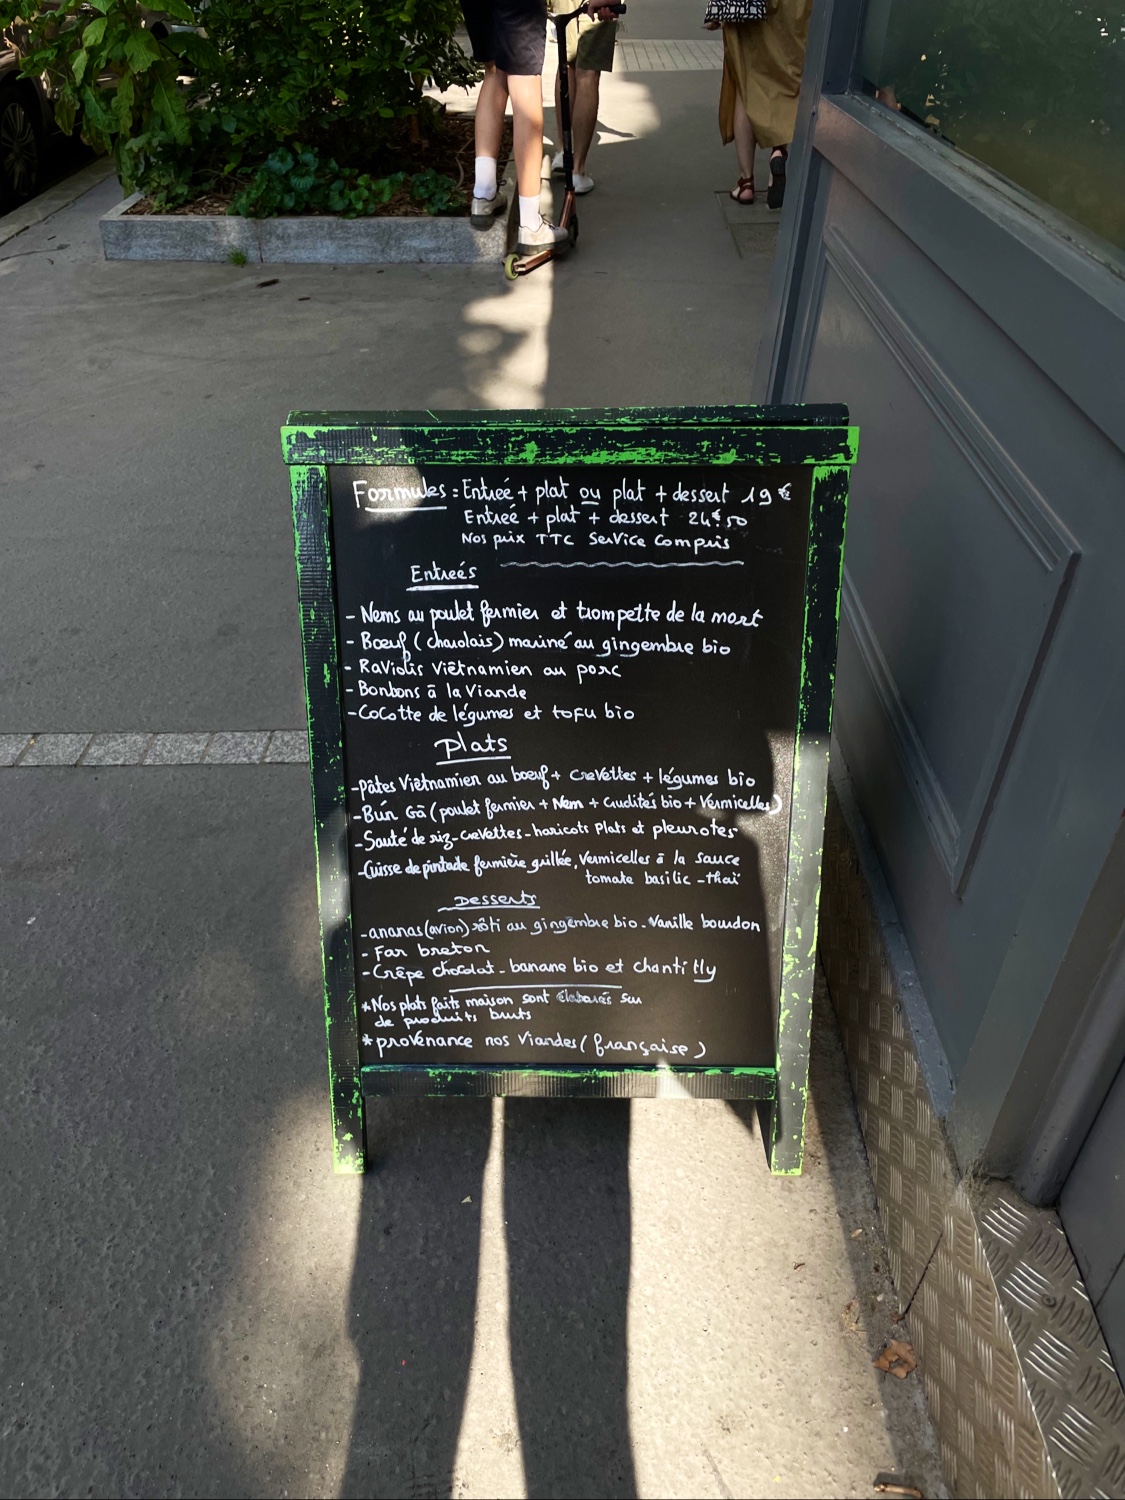 Formules : Entreé + plat ou plat + dessert 19€
Entreé + plat + dessert 24€50
Nos prix TTC Service Compris
Entreés
- Nems au poulet fermier et trompette de la mort
- Bœuf (charolais) mariné au gingembre bio
- Raviolis Viêtnamien au porc
- Bonbons à la Viande
- Cocotte de légumes et tofu bio
Plats
- pâtes Viêtnamien au bœuf + crevettes + légumes bio
- Bún Gà (poulet fermier + Nem + crudités bio + Vermicelles)
- Sauté de riz - crevettes - haricots plats et pleurotes
- Cuisse de pintade fermière grillée, Vermicelles à la sauce
tomate basilic - thaï
Desserts
- ananas (avion) rôti au gingembre bio - Vanille bourdon
- Far breton
- Crêpe chocolat - banane bio et chantilly
* Nos plats faits maison sont élaborés sur
de produits bruts
* provenance nos Viandes (française)